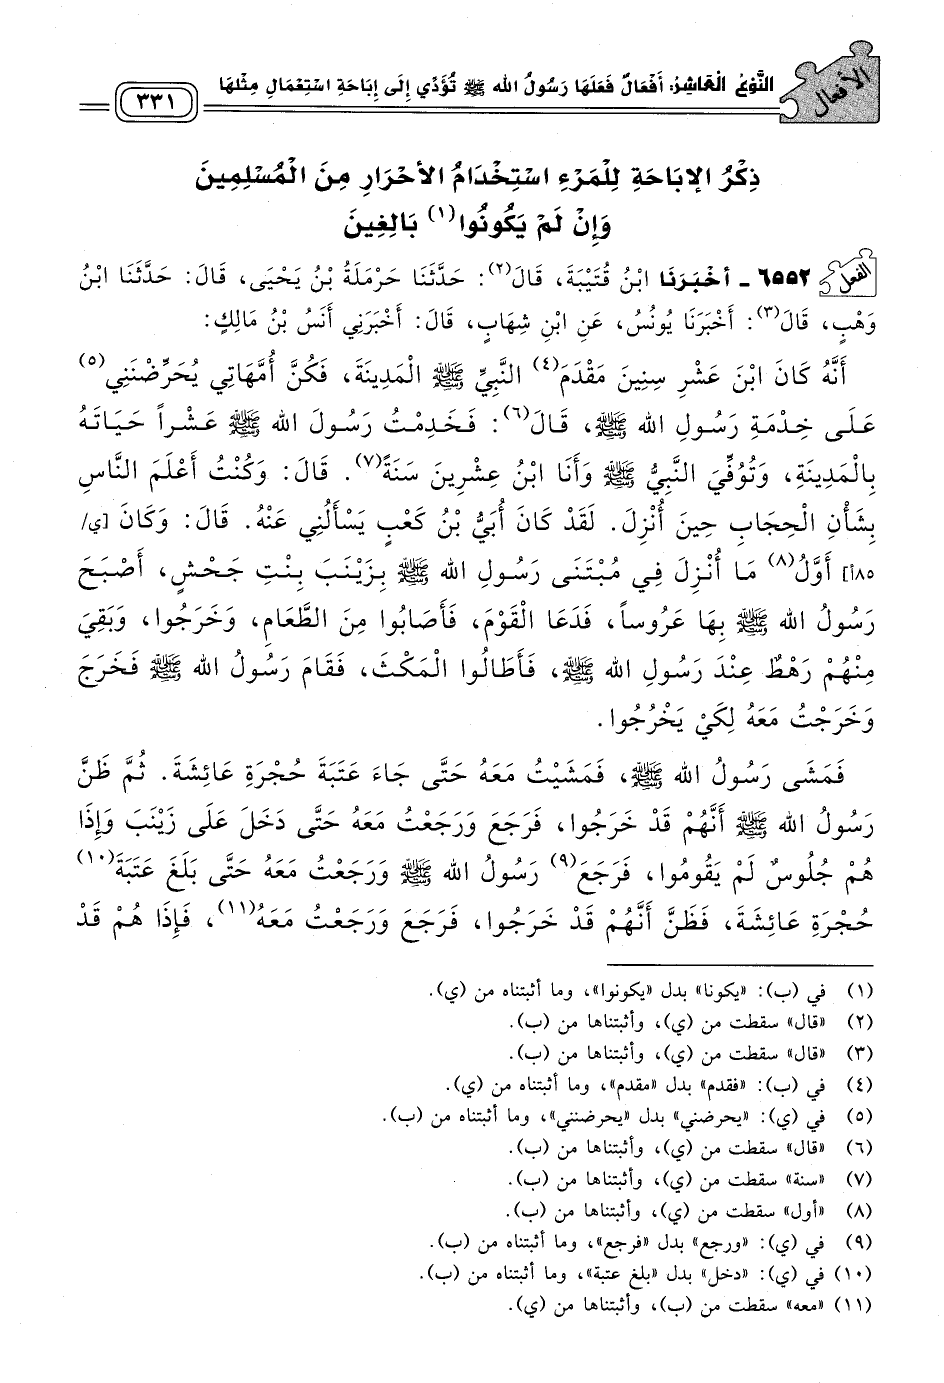 الأفعال
النَّوْعُ الْعَاشِرُ: أَفْعَالٌ فَعَلَهَا رَسُولُ الله ﷺ تُؤَدِّي إِلَى إِبَاحَةِ اسْتِعْمَالِ مِثْلِهَا
٣٣١
ذِكْرُ الإبَاحَةِ لِلْمَرْءِ اسْتِخْدَامُ الأَحْرَارِ مِنَ الْمُسْلِمِينَ
وَإِنْ لَمْ يَكُونُوا(١) بَالِغِينَ
الفعل ٦٥٥٢ ـ أخْبَرَنَا ابْنُ قُتَيْبَةَ، قَالَ(٢): حَدَّثَنَا حَرْمَلَةُ بْنُ يَحْيَى، قَالَ: حَدَّثَنَا ابْنُ
وَهْبٍ، قَالَ(٣): أَخْبَرَنَا يُونُسُ، عَنِ ابْنِ شِهَابٍ، قَالَ: أَخْبَرَنِي أَنَسُ بْنُ مَالِكٍ:
أَنَّهُ كَانَ ابْنَ عَشْرِ سِنِينَ مَقْدَمَ(٤) النَّبِيِّ ﷺ الْمَدِينَةَ، فَكُنَّ أُمَّهَاتِي يُحَرِّضْنَنِي(٥)
عَلَى خِدْمَةِ رَسُولِ الله ﷺ، قَالَ(٦): فَخَدِمْتُ رَسُولَ الله ﷺ عَشْراً حَيَاتَهُ
بِالْمَدِينَةِ، وَتُوُفِّيَ النَّبِيُّ ﷺ وَأَنَا ابْنُ عِشْرِينَ سَنَةً(٧). قَالَ: وَكُنْتُ أَعْلَمَ النَّاسِ
بِشَأْنِ الْحِجَابِ حِينَ أُنْزِلَ. لَقَدْ كَانَ أُبَيُّ بْنُ كَعْبٍ يَسْأَلُنِي عَنْهُ. قَالَ: وَكَانَ [ي/
١٨٥أ] أَوَّلُ(٨) مَا أُنْزِلَ فِي مُبْتَنَى رَسُولِ الله ﷺ بِزَيْنَبَ بِنْتِ جَحْشٍ، أَصْبَحَ
رَسُولُ الله ﷺ بِهَا عَرُوساً، فَدَعَا الْقَوْمَ، فَأَصَابُوا مِنَ الطَّعَامِ، وَخَرَجُوا، وَبَقِيَ
مِنْهُمْ رَهْطٌ عِنْدَ رَسُولِ الله ﷺ، فَأَطَالُوا الْمَكْثَ، فَقَامَ رَسُولُ الله ﷺ فَخَرَجَ
وَخَرَجْتُ مَعَهُ لِكَيْ يَخْرُجُوا.
فَمَشَى رَسُولُ الله ﷺ، فَمَشَيْتُ مَعَهُ حَتَّى جَاءَ عَتَبَةَ حُجْرَةِ عَائِشَةَ. ثُمَّ ظَنَّ
رَسُولُ الله ﷺ أَنَّهُمْ قَدْ خَرَجُوا، فَرَجَعَ وَرَجَعْتُ مَعَهُ حَتَّى دَخَلَ عَلَى زَيْنَبَ وَإِذَا
هُمْ جُلُوسٌ لَمْ يَقُومُوا، فَرَجَعَ(٩) رَسُولُ الله ﷺ وَرَجَعْتُ مَعَهُ حَتَّى بَلَغَ عَتَبَةَ(١٠)
حُجْرَةِ عَائِشَةَ، فَظَنَّ أَنَّهُمْ قَدْ خَرَجُوا، فَرَجَعَ وَرَجَعْتُ مَعَهُ(١١)، فَإِذَا هُمْ قَدْ
(١) في (ب): «يكونا» بدل «يكونوا»، وما أثبتناه من (ي).
(٢) «قال» سقطت من (ي)، وأثبتناها من (ب).
(٣) «قال» سقطت من (ي)، وأثبتناها من (ب).
(٤) في (ب): «فقدم» بدل «مقدم»، وما أثبتناه من (ي).
(٥) في (ي): «يحرضني» بدل «يحرضنني»، وما أثبتناه من (ب).
(٦) «قال» سقطت من (ي)، وأثبتناها من (ب).
(٧) «سنة» سقطت من (ي)، وأثبتناها من (ب).
(٨) «أول» سقطت من (ي)، وأثبتناها من (ب).
(٩) في (ي): «ورجع» بدل «فرجع»، وما أثبتناه من (ب).
(١٠) في (ي): «دخل» بدل «بلغ عتبة»، وما أثبتناه من (ب).
(١١) «معه» سقطت من (ب)، وأثبتناها من (ي).